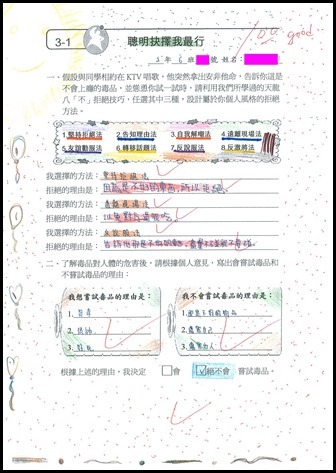 100
good
3-1 聰明抉擇我最行
3年6班 號 姓名:
一、假設與同學相約在KTV唱歌,他突然拿出安非他命,告訴你這是
不會上癮的毒品,並慫恿你試一試時,請利用我們所學過的天龍
八「不」拒絕技巧,任選其中三種,設計屬於你個人風格的拒絕
方法。
1.堅持拒絕法 2.告知理由法 3.自我解嘲法 4.遠離現場法
5.友誼勸服法 6.轉移話題法 7.反說服法 8.反激將法
我選擇的方法:堅持拒絕法
拒絕的理由是:因為是不好的東西,所以拒絕。
我選擇的方法:遠離現場法
拒絕的理由是:以免對方
我選擇的方法:反說服法
拒絕的理由是:告訴他
二、了解毒品對人體的危害後,請根據個人意見,寫出會嘗試毒品和
不嘗試毒品的理由:
我想嘗試毒品的理由是:
1. 好奇
2.
3.
我不會嘗試毒品的理由:
1.
2. 傷害自己
3. 傷害他人
根據上述的理由,我決定 □會 ☑絕不會 嘗試毒品。